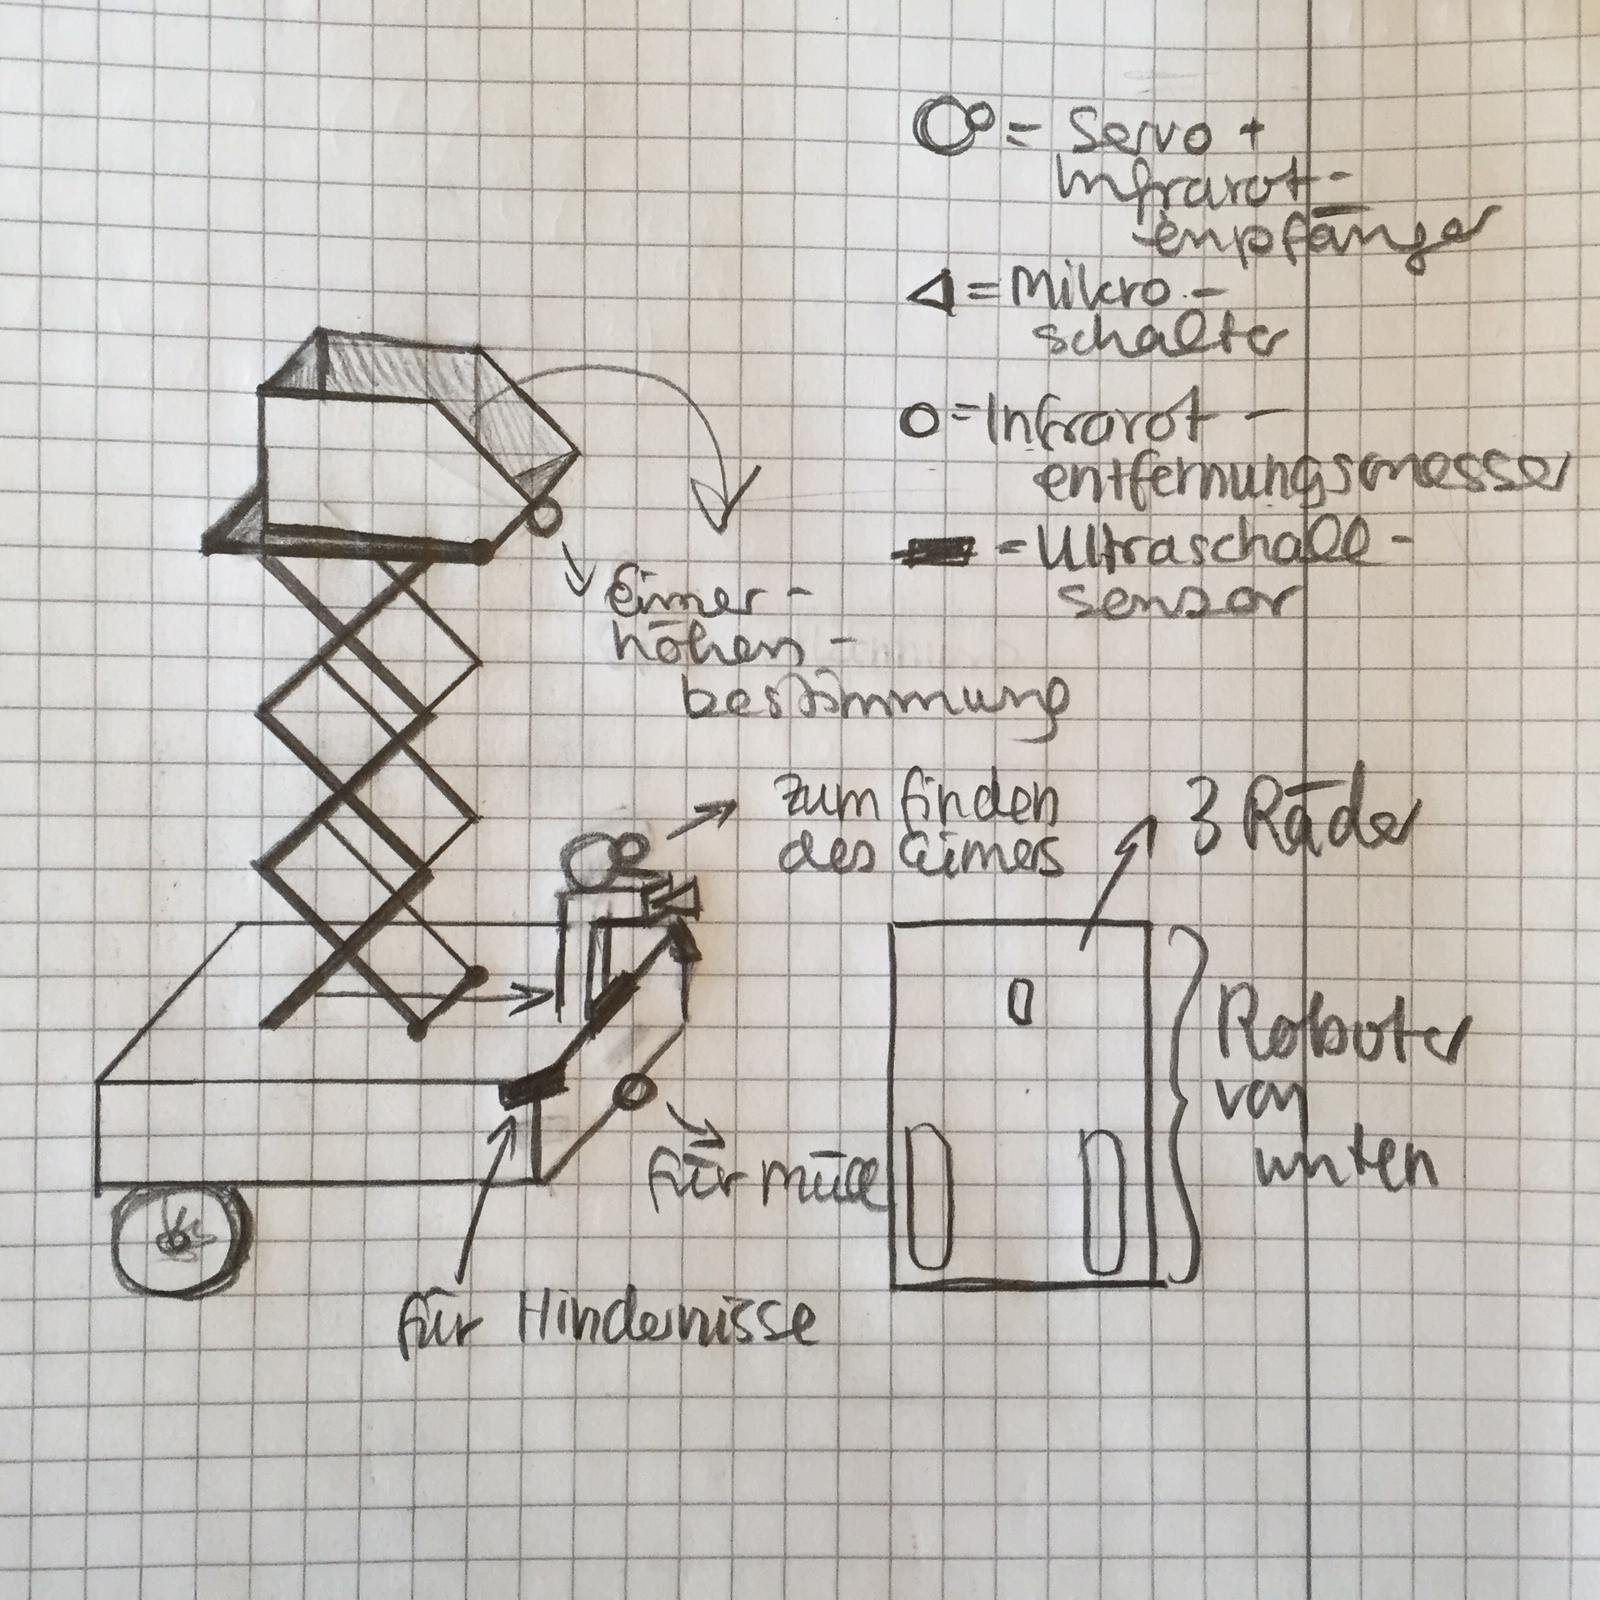 = Servo +
Infrarot-
-empfänger
= Mikro-
schalter
= Infrarot-
entfernungsmesser
= Ultraschall-
sensor
Eimer-
höhen-
bestimmung
zum finden
des Eimers
3 Räder
Roboter
von
unten
für Müll
für Hindernisse